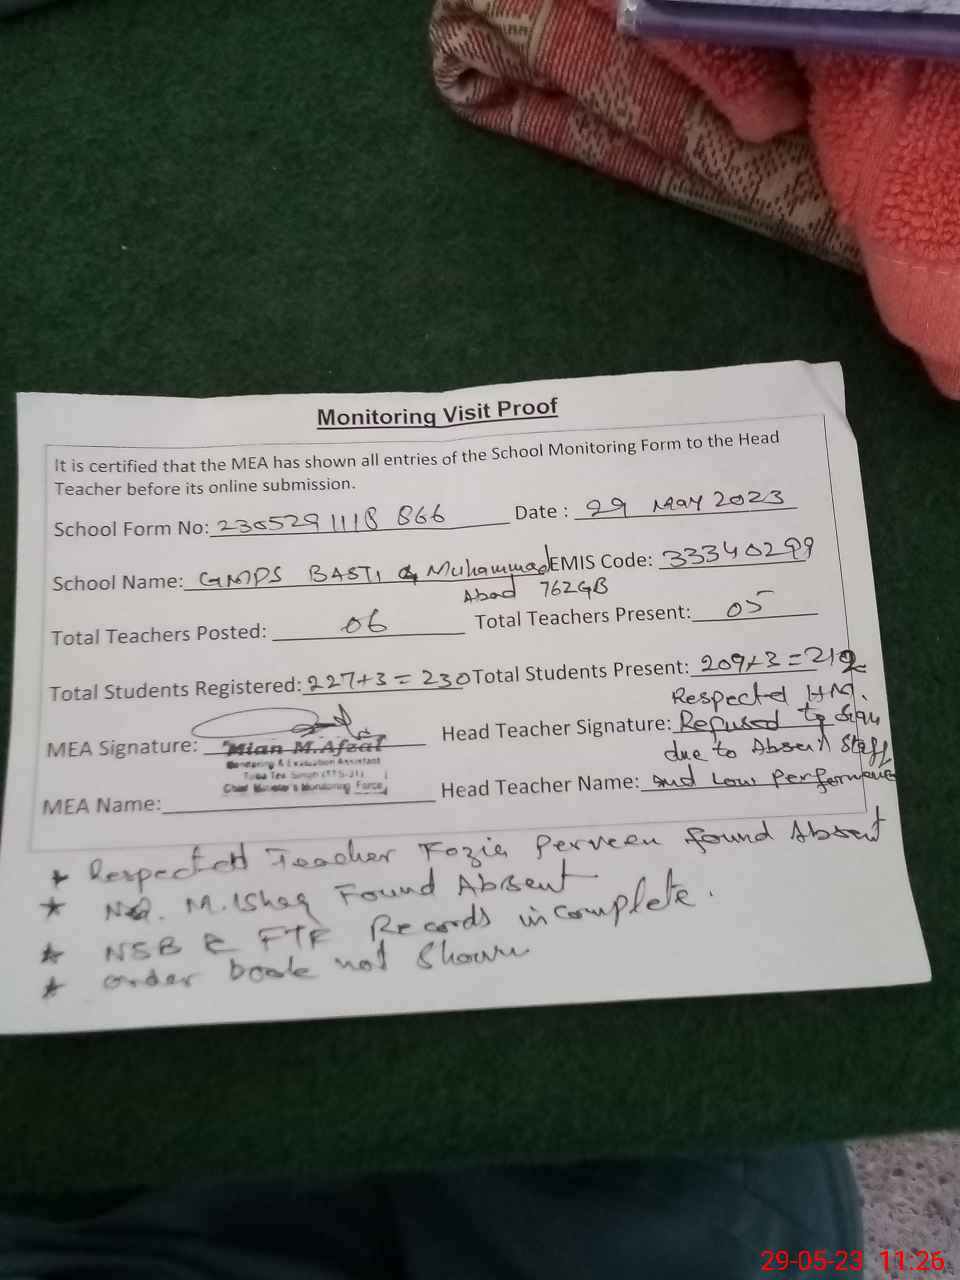 Monitoring Visit Proof
It is certified that the MEA has shown all entries of the School Monitoring Form to the Head
Teacher before its online submission.
School Form No: 2305291118 866 Date : 29 May 2023
School Name: GMPS BASTI Muhammad EMIS Code: 33340299
Abad 762GB
Total Teachers Posted: 06 Total Teachers Present: 05
Total Students Registered: 227+3 = 230 Total Students Present: 209+3 = 212
Respected HM.
MEA Signature: Head Teacher Signature: Refused to Sign
due to Absent Staff
Mian M.Afzal
Monitoring & Evaluation Assistant
Toba Tek Singh (TTS-31)
Chief Minister's Monitoring Force
MEA Name: Head Teacher Name: and Low Performance
* Respected Teacher Fozia Perveen found Absent
* M. Ishaq Found Absent
* NSB & FTF Records incomplete.
* order book not Shown
29-05-23 11:26